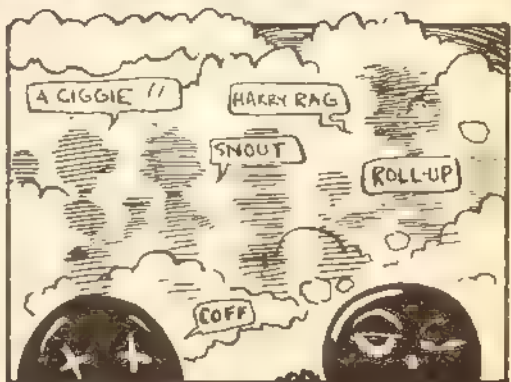 A CIGGIE !!
HARRY RAG
SNOUT
ROLL-UP
COFF